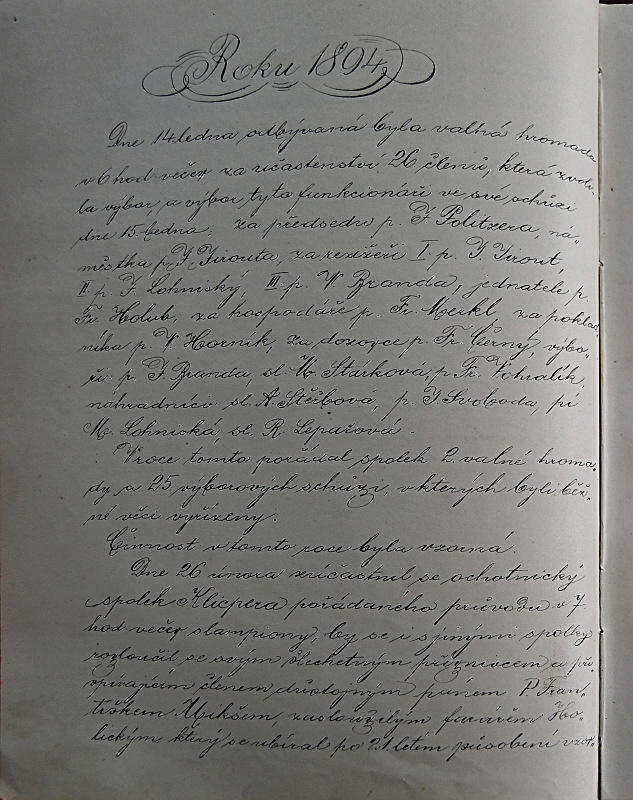 Roku 1894.
Dne 14. ledna odbývaná byla valná hromada
v 6 hod večer za učastenství 26 členů, která zvoli-
la výbor, a výbor tyto funkcionáře ve své schůzi
dne 15. ledna: Za předsedu p. F. Politzera, ná-
městka p. J. Jirouta, za režiséři I. p. J. Jirout,
II p. F. Lohniský, III. p. V. Branda, jednatele p.
Fr. Holub, za hospodáře p. Fr. Merkl, za poklad-
níka p. V. Horník, za dozorce p. Fr. Černý, výbo-
ři: p. J. Branda, sl. Stárková, p. Fr. Vohralík,
náhradníci sl. A. Stěibova, p. J. Svoboda, pí
M. Lohniská, sl. R. Lepařová.
V roce tomto pořádal spolek 2. valné hroma-
dy a 25 výborových schůzí, v kterých byli běž-
né věci vyřízeny.
Činnost v tomto roce byla vzorná.
Dne 26 února zúčastnil se ochotnický
spolek Klicpera pořádaného průvodu v 7.
hod večer s lampiony, by se i s jinými spolky
rozloučil se svým šlechetným příznivcem a při-
spívajícím členem důstojným pánem P. Fran-
tiškem Mikšem, zasloužilým farářem Ho-
lickým, který se ubíral po 21. letém působení vzor-